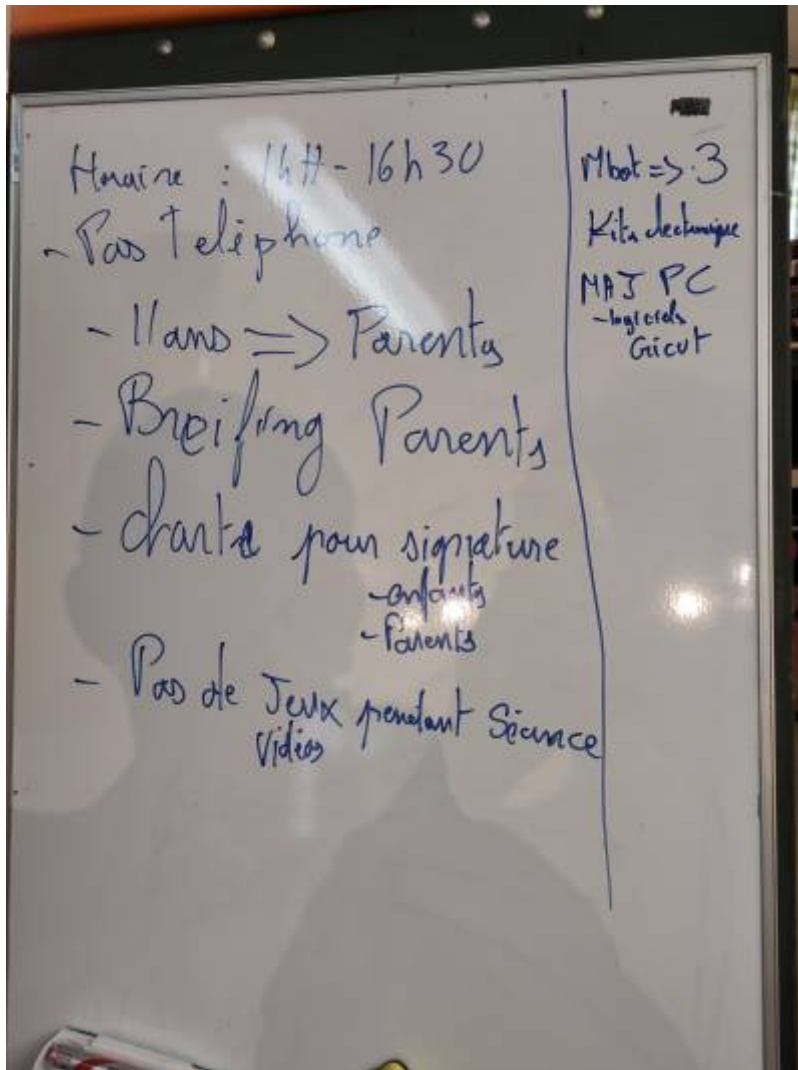 Horaire : 14H - 16h30
- Pas Téléphone
- 11ans => Parents
- Breifing Parents
- Charte pour signature
- enfants
- Parents
- Pas de Jeux pendant Séance
Vidéos
Mbot => 3
Kits électronique
MAJ PC
- logiciels